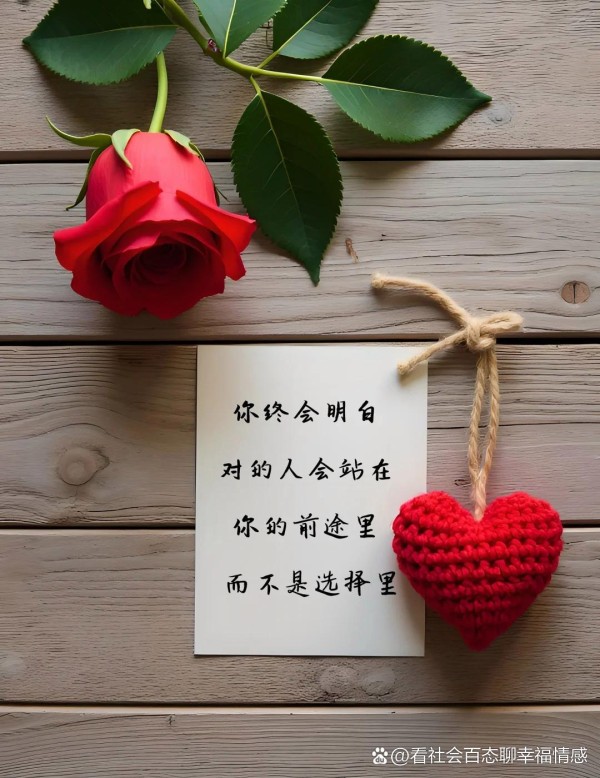 你终会明白
对的人会站在
你的前途里
而不是选择里
@看社会百态聊幸福情感